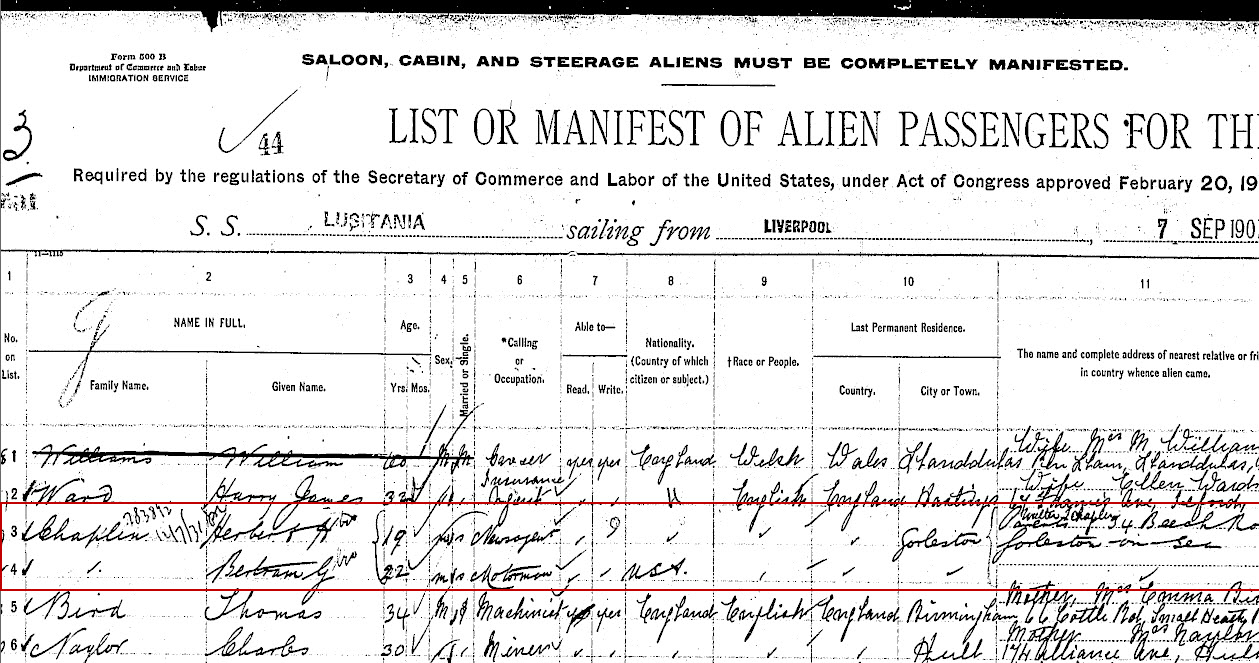 Form 500 B
Department of Commerce and Labor
IMMIGRATION SERVICE
SALOON, CABIN, AND STEERAGE ALIENS MUST BE COMPLETELY MANIFESTED.
3
44
LIST OR MANIFEST OF ALIEN PASSENGERS FOR TH
Required by the regulations of the Secretary of Commerce and Labor of the United States, under Act of Congress approved February 20, 19
S. S. LUSITANIA sailing from LIVERPOOL, 7 SEP 190
1 2 3 4 5 6 7 8 9 10 11
No. on List.
NAME IN FULL.
Family Name. Given Name.
Age.
Yrs. Mos.
Sex.
Married or Single.
*Calling or Occupation.
Able to—
Read. Write.
Nationality. (Country of which citizen or subject.)
†Race or People.
Last Permanent Residence.
Country. City or Town.
The name and complete address of nearest relative or fri
in country whence alien came.
1 Williams William 60 M M yes yes England Welsh Wales Llanddulas Wife Mrs M William
Llanddulas,
2 Ward Harry James 32 Insurance Agent " English England Hastings Wife Ellen Ward
3 Chaplin Herbert A 19 s Newsagent Gorleston 4 Beech Ro
Gorleston-on-Sea
4 " Bertram G 22 m s Motorman USA
5 Bird Thomas 34 M S Machinist yes yes England English England Birmingham Mother, Mrs Emma Bir
66 Cottle Rd, Small Heath,
6 Naylor Charles 30 Miner Hull Mother Mrs Naylor
174 Alliance Ave, Hull